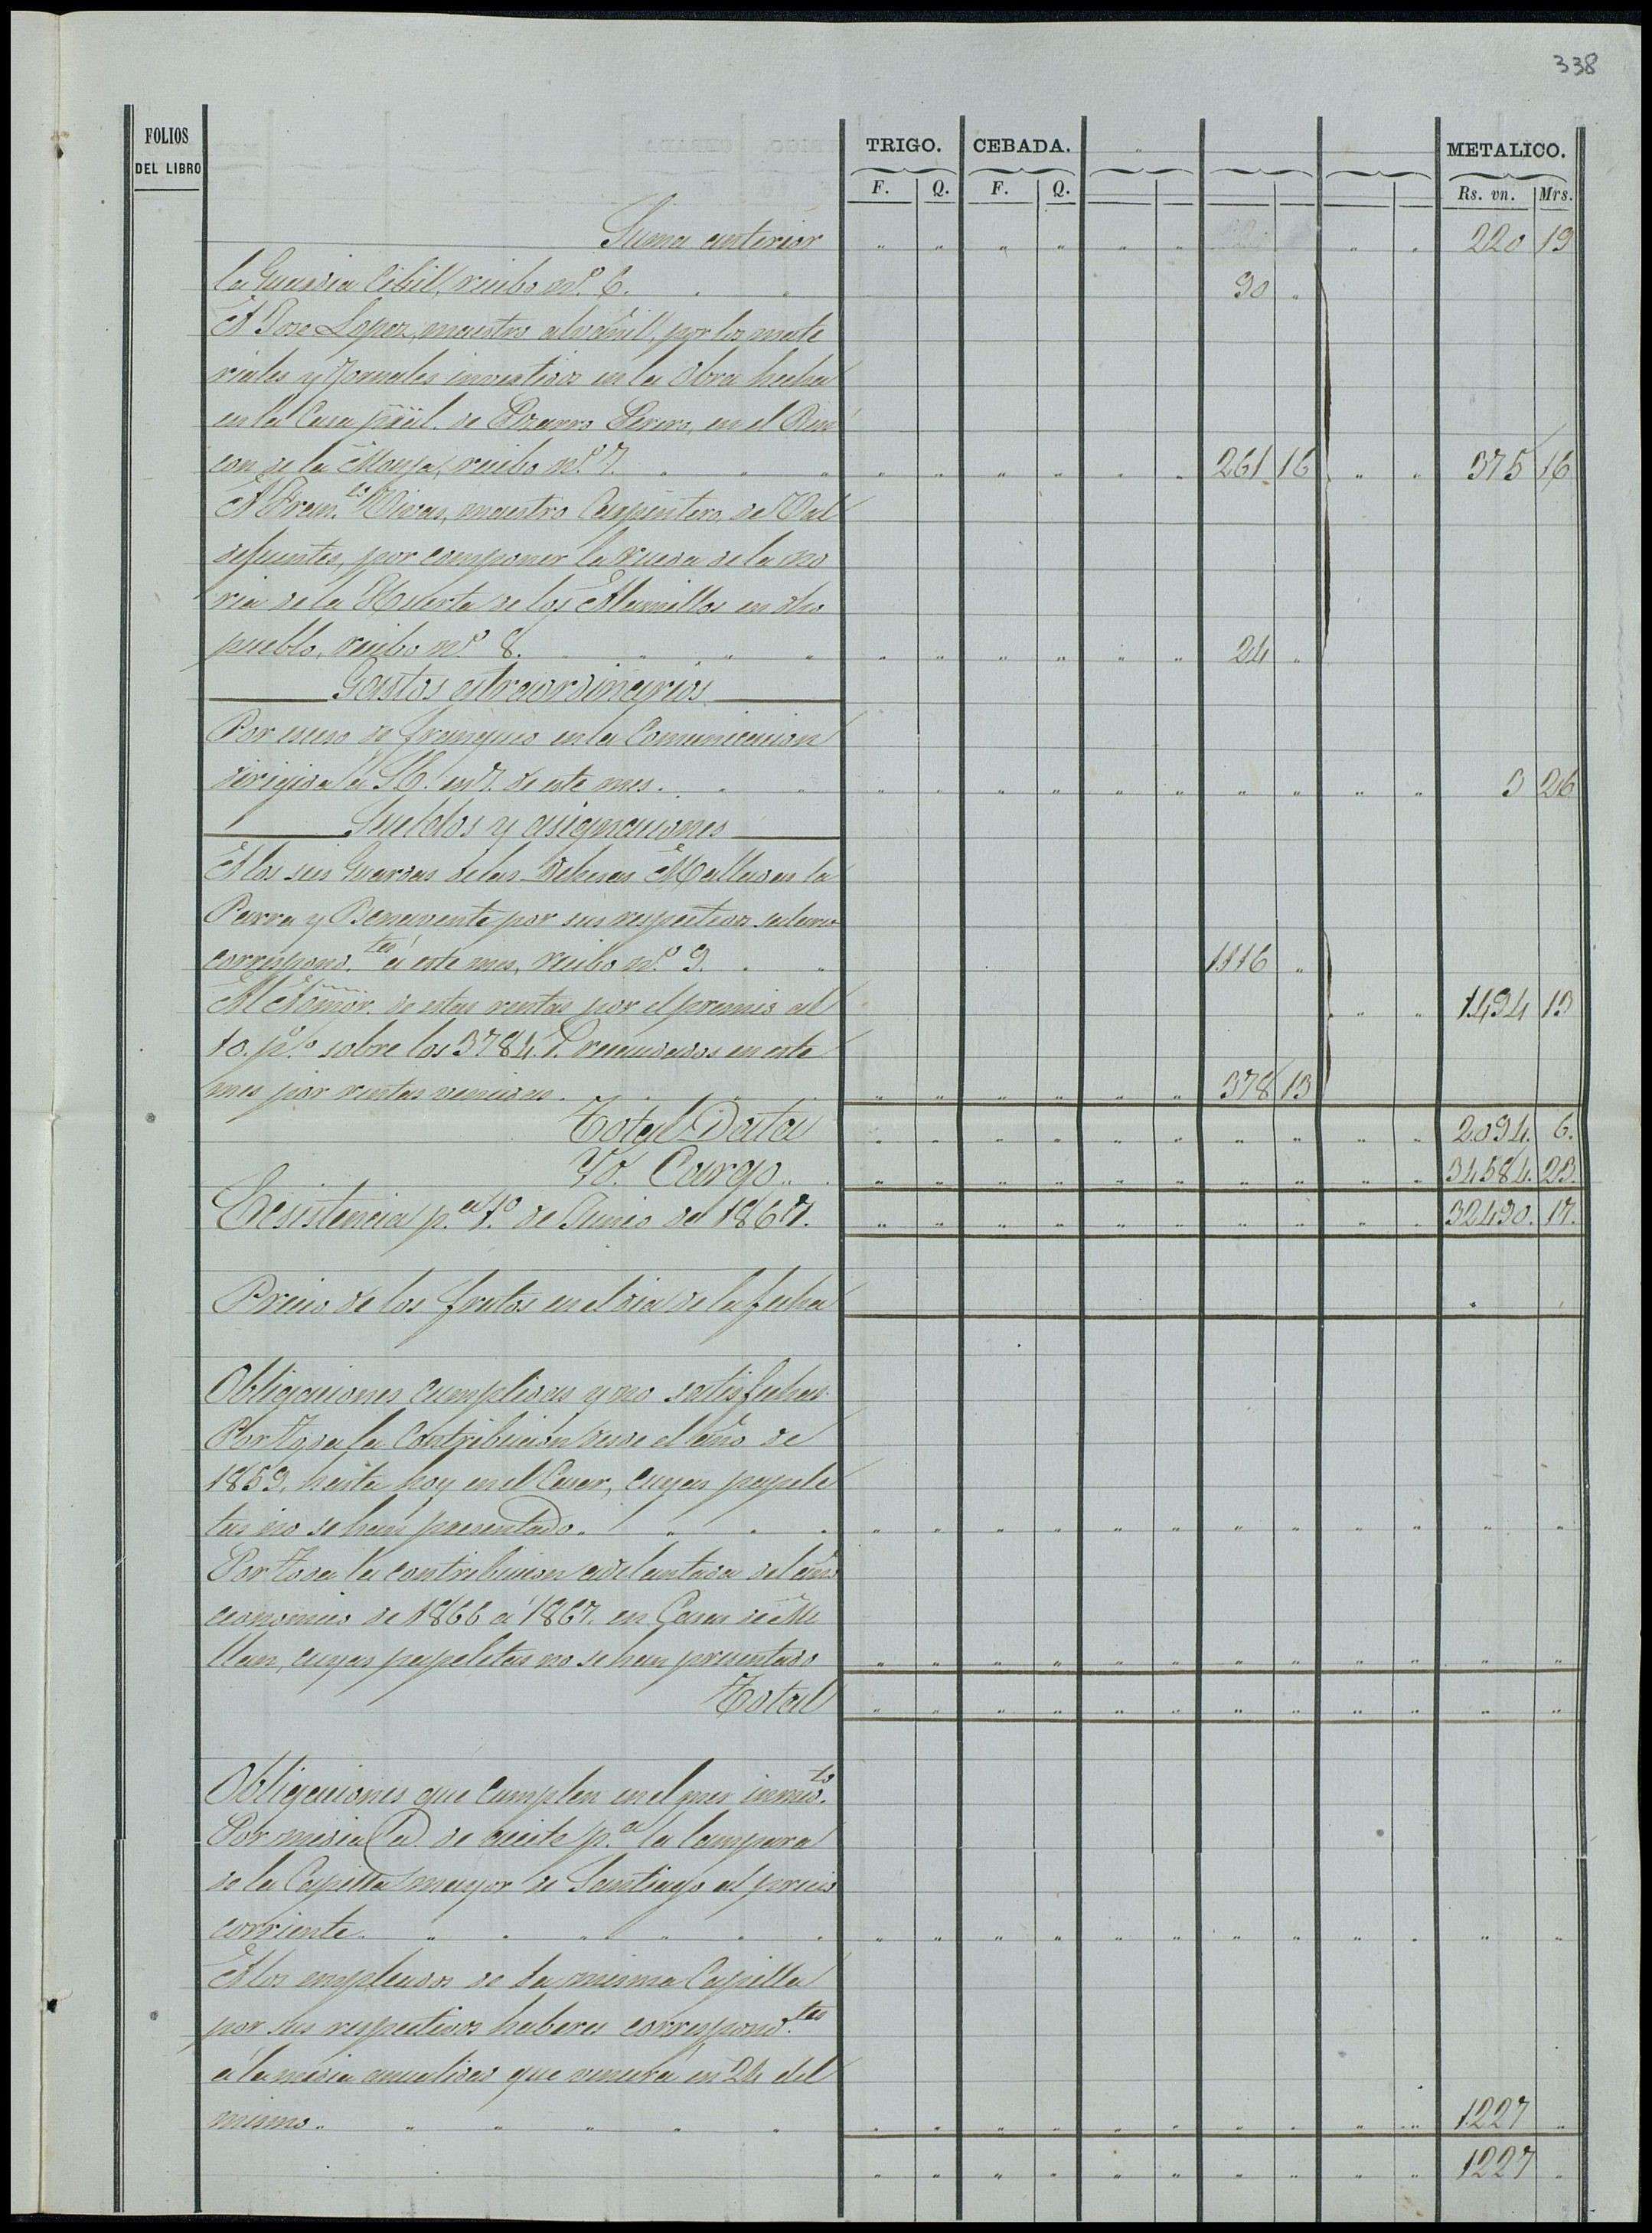 338
FOLIOS DEL LIBRO TRIGO. CEBADA. METALICO.
F. Q. F. Q. Rs. vn. Mrs.
Suma anterior " " " " " " " " 220 19
la Guardia Cibill, recibo nº. 6. " " 90 "
A Jose Lopez, maestro alvañil, por los mate
riales y Jornales invertidos en la obra hecha
en la Casa ppal. de Lozanos Perero, en el Rin
con de la Monja, recibo nº. 7. " " " " " " " " " 261 16 " " 375 16
A Fran.co Vivas, maestro Carpintero, de Val
defuentes, por componer la rueda de la no
ria de la Huerta de los Alamillos en dho
pueblo, recibo nº. 8. " " " " " " " " " " 24 "
Gastos extraordinarios
Por esceso de franqueo en la Comunicacion
dirigida a S.E. en 7. de este mes. " " " " " " " " " " " " 3 26
Sueldos y asignaciones
A los seis Guardas de las Dehesas Malladas la
Parra y Benavente por sus respectivos salarios
correspond.tes á este mes, recibo nº. 9. " " 1116 "
Al Admor. de estas rentas por el premio al
" " 1494 13
10. p.% sobre los 3784. r. recaudados en este
mes por rentas vencidas. " " " " " " " " 378 13
Total Data " " " " " " " " " " 2094. 6.
Yd. Cargo " " " " " " " " " " 34584. 23.
Ecsistencia p.a 1º. de Junio de 1867. " " " " " " " " " " 32490. 17.
Precio de los frutos en el dia de la fecha
Obligaciones cumplidas y no satisfechas
Por toda la Contribucion desde el año de
1859, hasta hoy en el Casar, cuyas papele
tas no se han presentado. " " " " " " " " " " " " " " "
Por toda la contribucion adelantada del año
economico de 1866 á 1867. en Casas de Mi
llan, cuyas papeletas no se han presentado " " " " " " " " " " " "
Total " " " " " " " " " " " "
Obligaciones que cumplen en el mes inmed.to
Por media @ de aceite p.a la lampara
de la Capilla mayor de Santiago al precio
corriente. " " " " " " " " " " " " " " " " " "
A los empleados de la misma Capilla
por sus respectivos haberes correspond.tes
a la media anualidad que vencerá en 24 del
mismo. " " " " " " " " " " " " " " " 1227 "
" " " " " " " " " " 1227 "